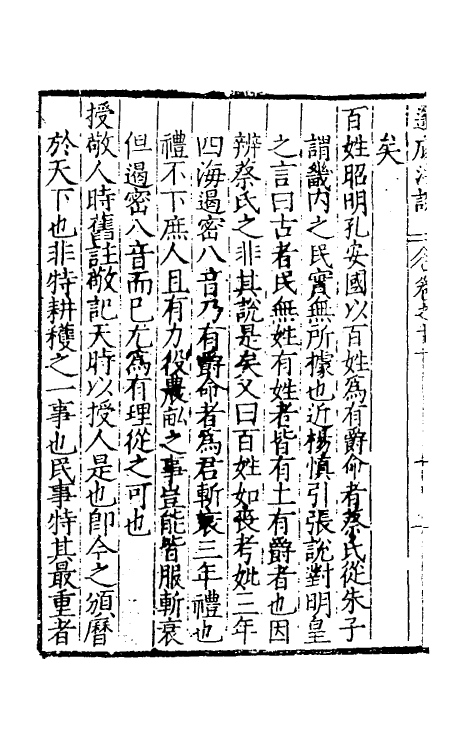 矣
百姓昭明孔安國以百姓爲有爵命者蔡氏從朱子
謂畿内之民實無所據也近楊慎引張說對明皇
之言曰古者民無姓有姓者皆有土有爵者也因
辨蔡氏之非其說是矣又曰百姓如喪考妣三年
四海遏密八音乃有爵命者爲君斬衰三年禮也
禮不下庶人且有力役農畝之事豈能皆服斬衰
但遏密八音而已尤爲有理從之可也
授敬人時舊註敬記天時以授人是也卽今之頒曆
於天下也非特耕穫之一事也民事特其最重者